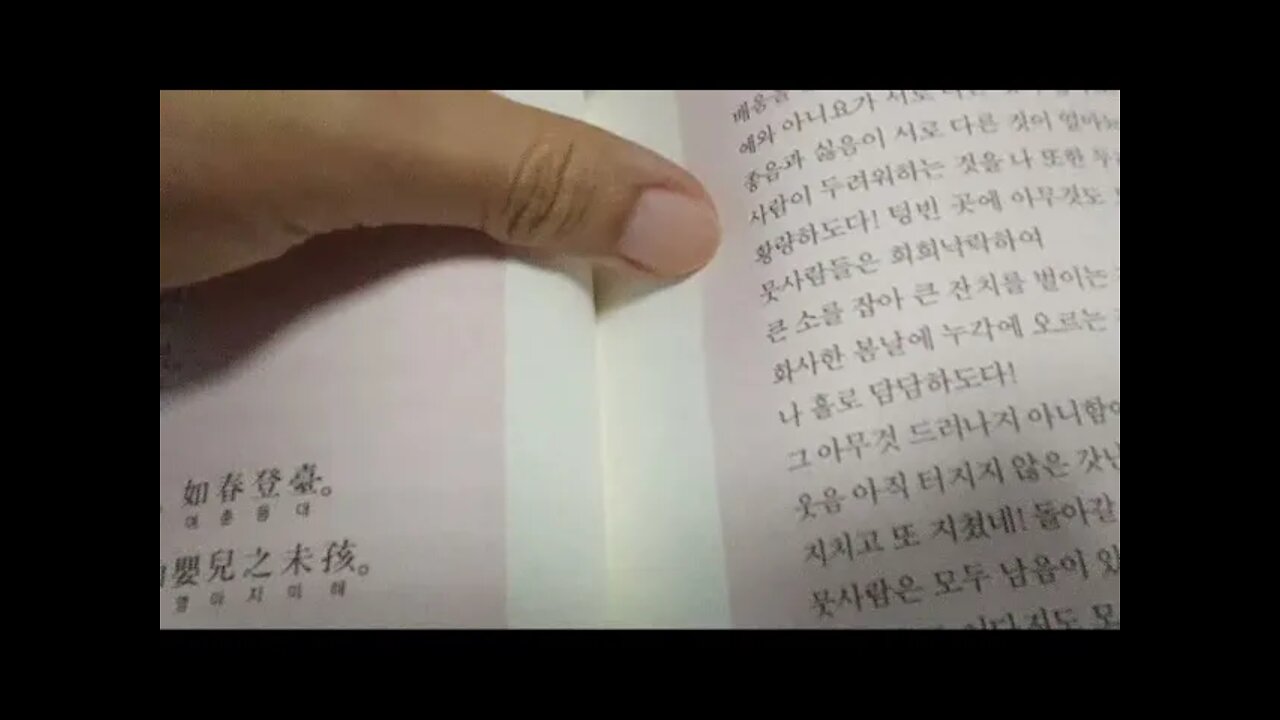 如春登臺。
여춘등대
嬰兒之未孩。
영아지미해
배움을
예와 아니요가 서로 다른
좋음과 싫음이 서로 다른 것이 얼마나
사람이 두려워하는 것을 나 또한 두려
황량하도다! 텅빈 곳에 아무것도
뭇사람들은 희희낙락하여
큰 소를 잡아 큰 잔치를 벌이는
화사한 봄날에 누각에 오르는
나 홀로 담담하도다!
그 아무것 드러나지 아니함이
웃음 아직 터지지 않은 갓난
지치고 또 지쳤네! 돌아갈
뭇사람은 모두 남음이 있